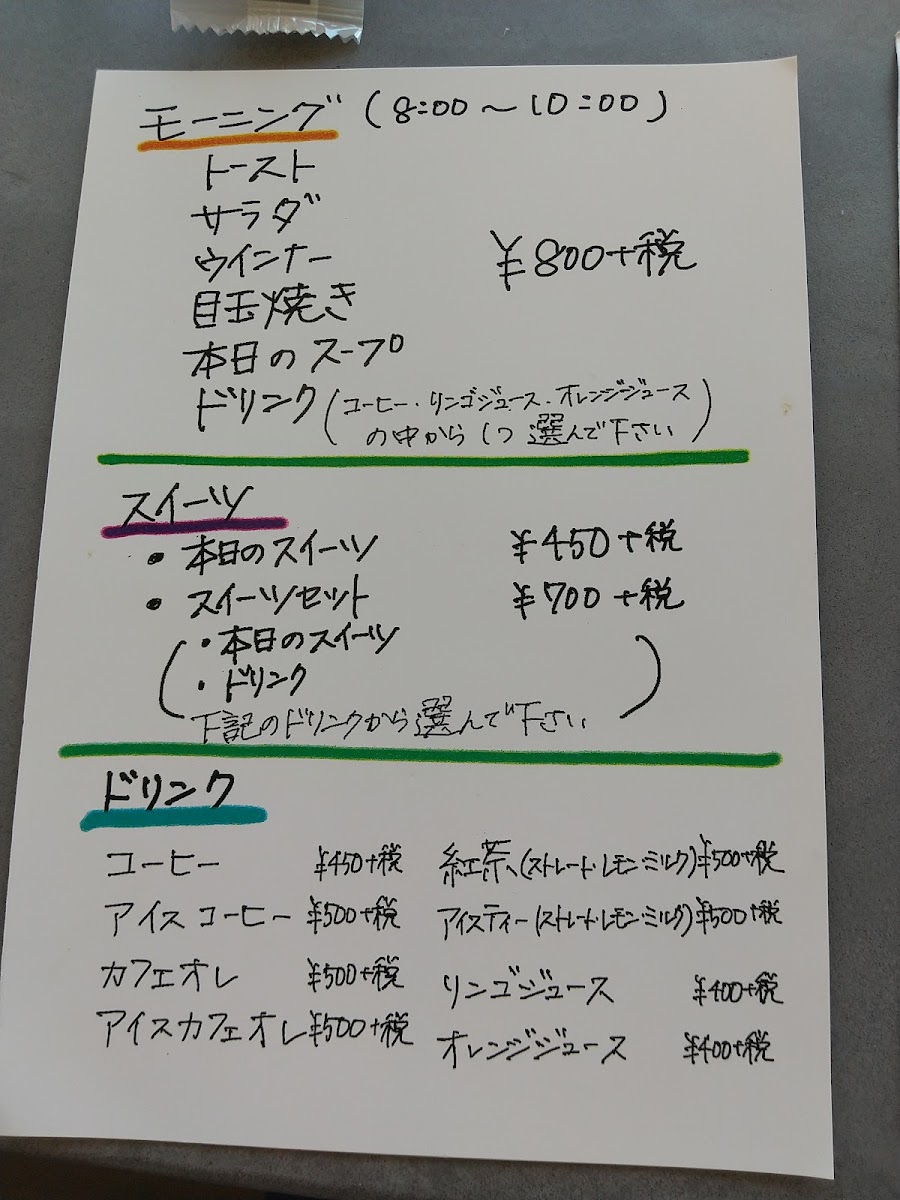 モーニング (8:00～10:00)
トースト
サラダ
ウインナー
¥800+税
目玉焼き
本日のスープ
ドリンク(コーヒー・リンゴジュース・オレンジジュース
の中から1つ選んで下さい)
スイーツ
・本日のスイーツ ¥450+税
・スイーツセット ¥700+税
(・本日のスイーツ
・ドリンク
下記のドリンクから選んで下さい)
ドリンク
コーヒー ¥450+税
アイスコーヒー ¥500+税
カフェオレ ¥500+税
アイスカフェオレ ¥500+税
紅茶(ストレート・レモン・ミルク) ¥500+税
アイスティー(ストレート・レモン・ミルク) ¥500+税
リンゴジュース ¥400+税
オレンジジュース ¥400+税